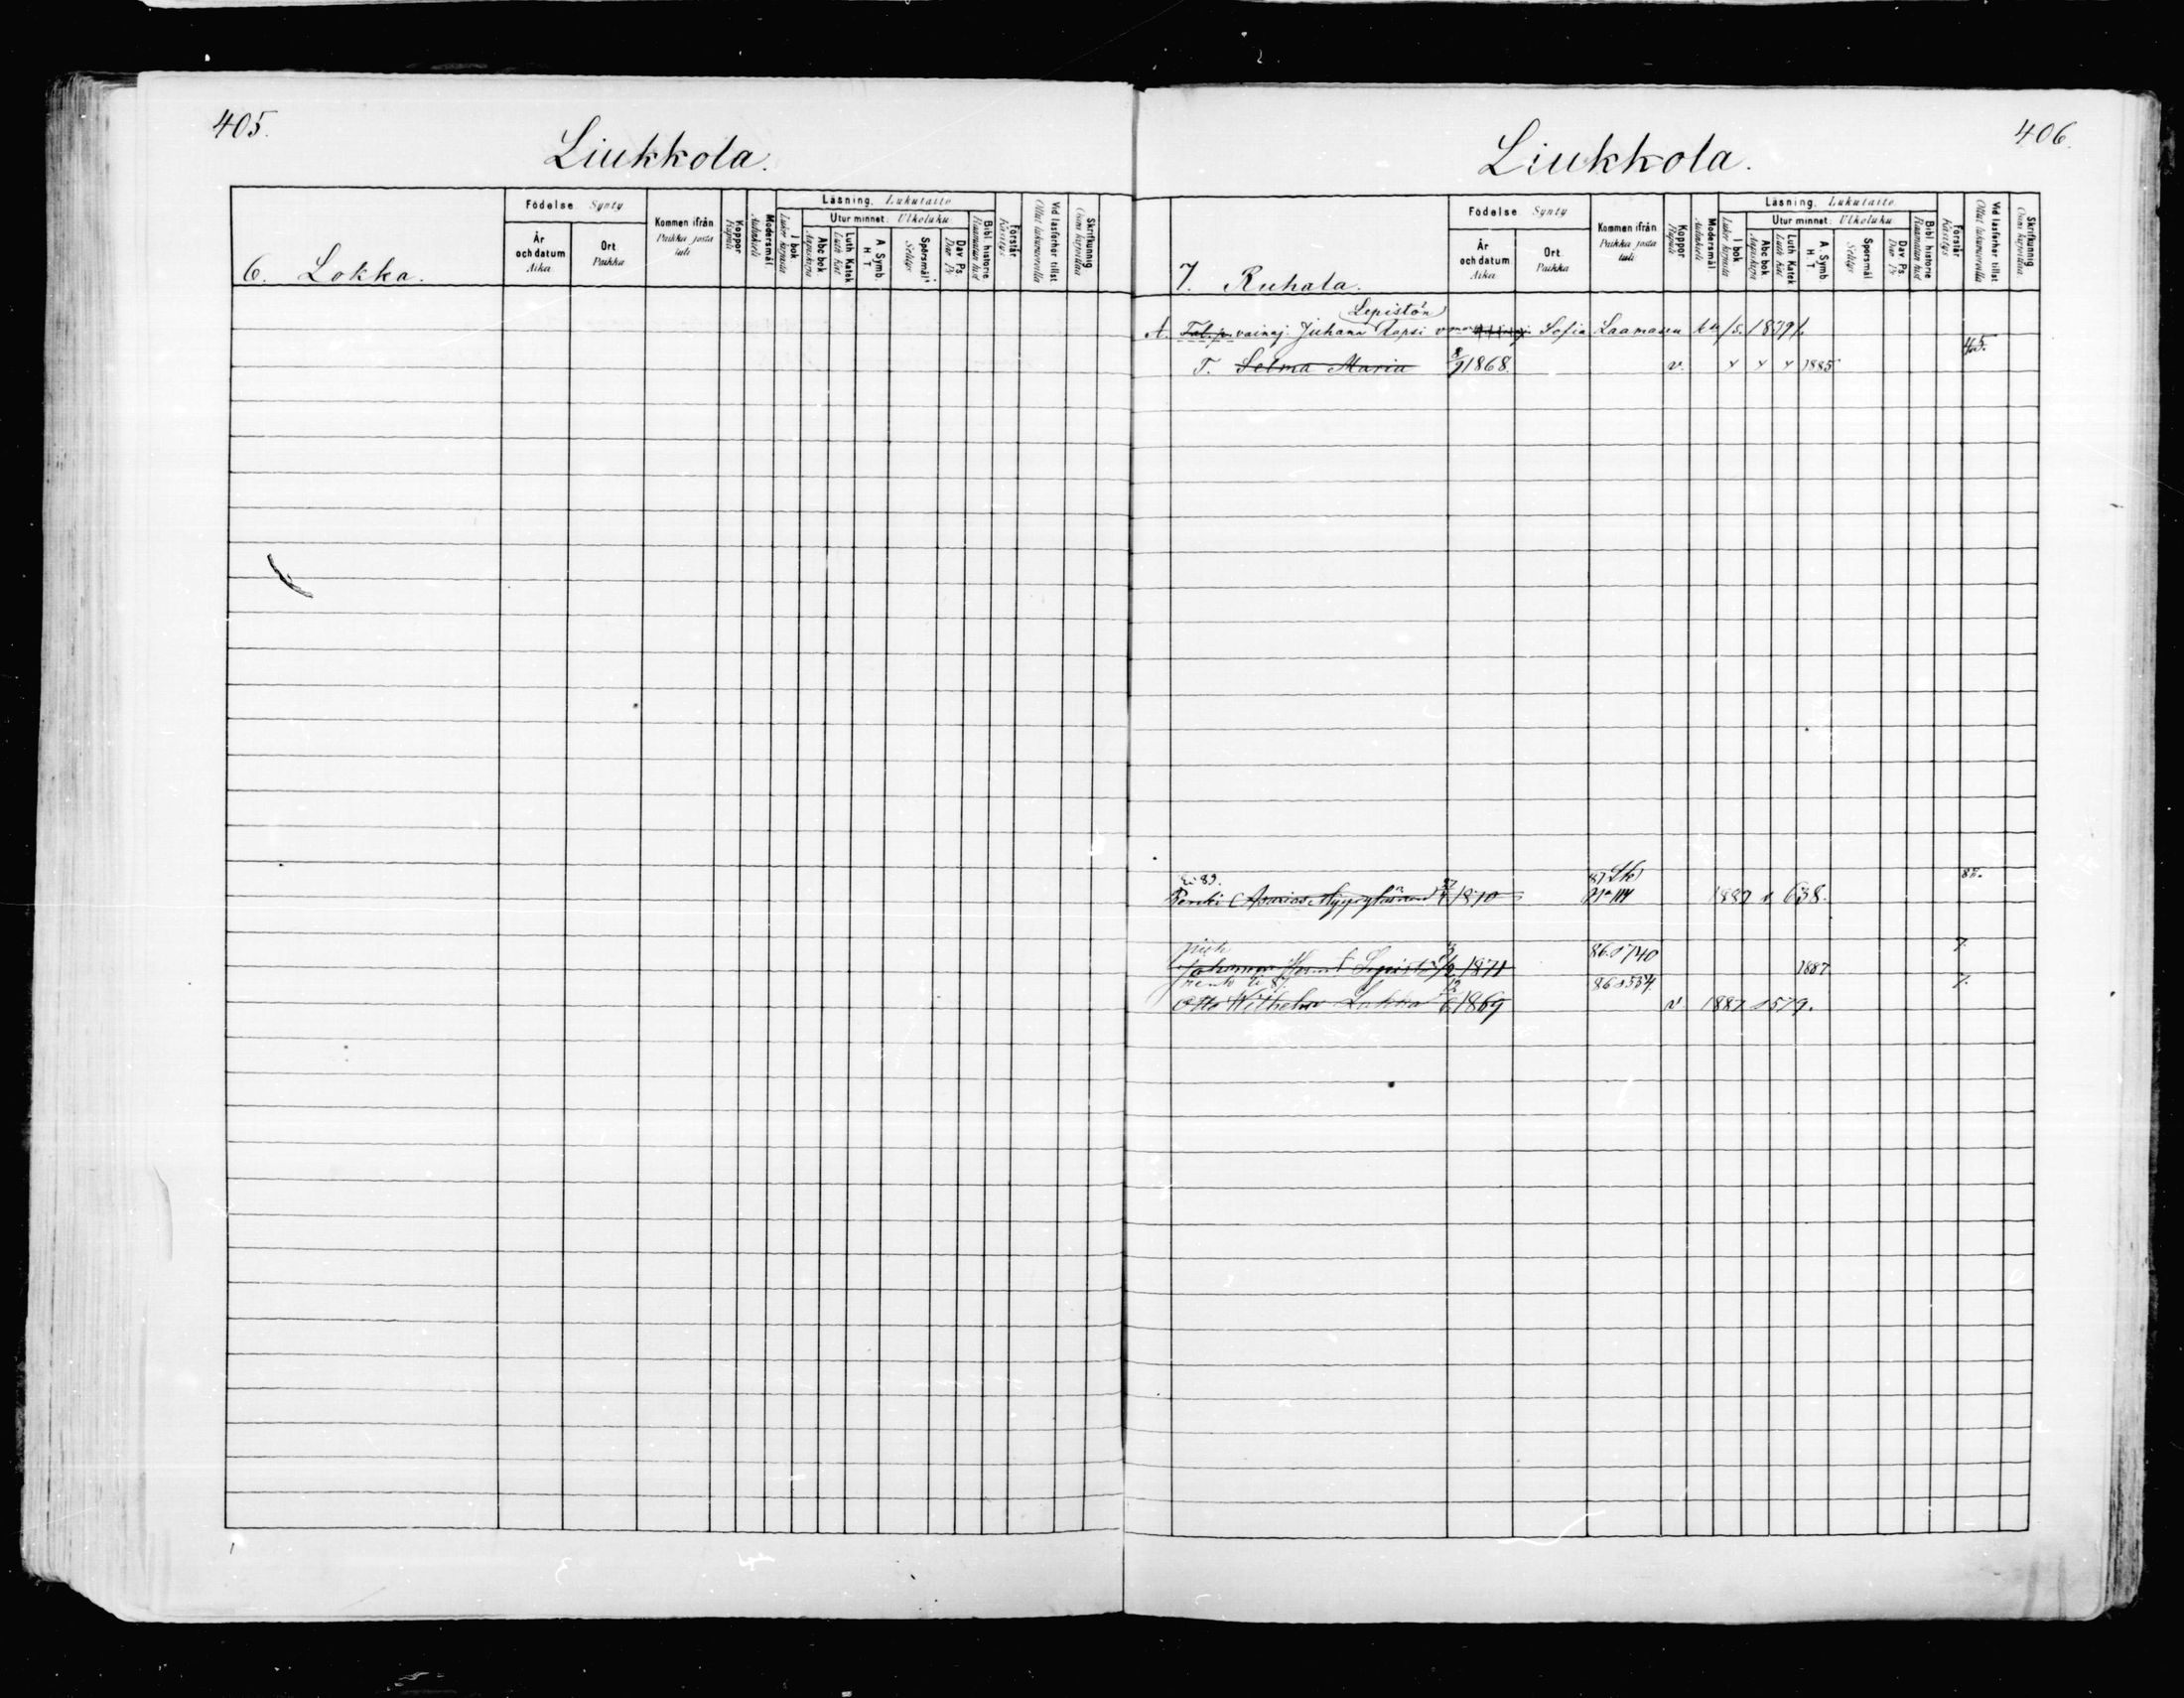 405.
Liukkola.
Födelse Synty
År och datum Aika
Ort Paikka
Kommen ifrån Paikka josta tuli
Koppor Rupuli
Modersmål Äidinkieli
Läsning. Lukutaito
I bok Lukee kirjasta
Utur minnet: Ulkoluku
Abc bok Aapiskirja
Luth. Katek Luth. Kat
A Symb. H. T
Spörsmål Selitys
Dav. Ps Dav. Ps
Bibl. historie Raamatun hist
Förstår Käsitys
Vid läsförhör tillst Ollut lukukerroilla
Skrifkunnig Osaa kirjoittaa
6. Lokka.
406.
Liukkola.
Födelse Synty
År och datum Aika
Ort Paikka
Kommen ifrån Paikka josta tuli
Koppor Rupuli
Modersmål Äidinkieli
Läsning. Lukutaito
I bok Lukee kirjasta
Utur minnet: Ulkoluku
Abc bok Aapiskirja
Luth. Katek Luth. Kat
A Symb. H. T
Spörsmål Selitys
Dav. Ps Dav. Ps
Bibl. historie Raamatun hist
Förstår Käsitys
Vid läsförhör tillst Ollut lukukerroilla
Skrifkunnig Osaa kirjoittaa
7. Ruhala.
Lepistön
A. Tal. p. vainaj. Juhana Sofia Laamasen 1879
T. Selma Maria 8/9 1868. v. 1885 45.
89. 87 82.
Renki 1870 1887 s 638.
86.s 740 7.
Johannes Lepistö 1871 1887
86 s 534. 7.
Otto Wilhelm 1869 v 1887 s 579.